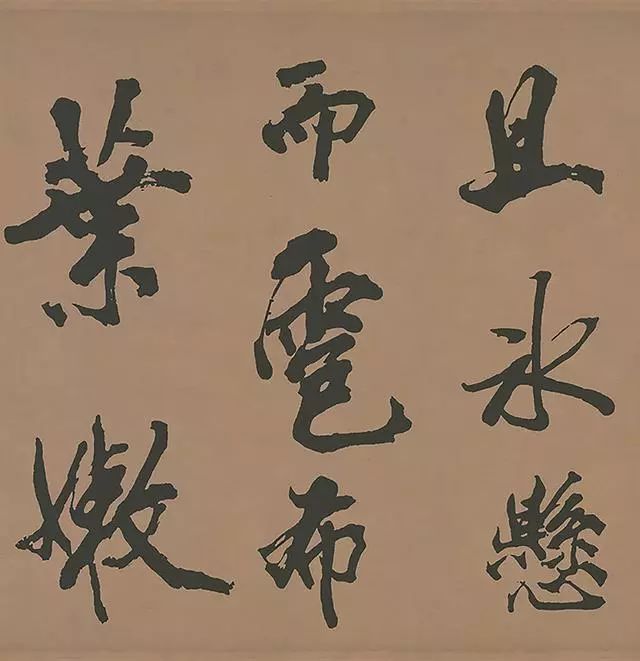 且水懸
而雹布
葉嫩